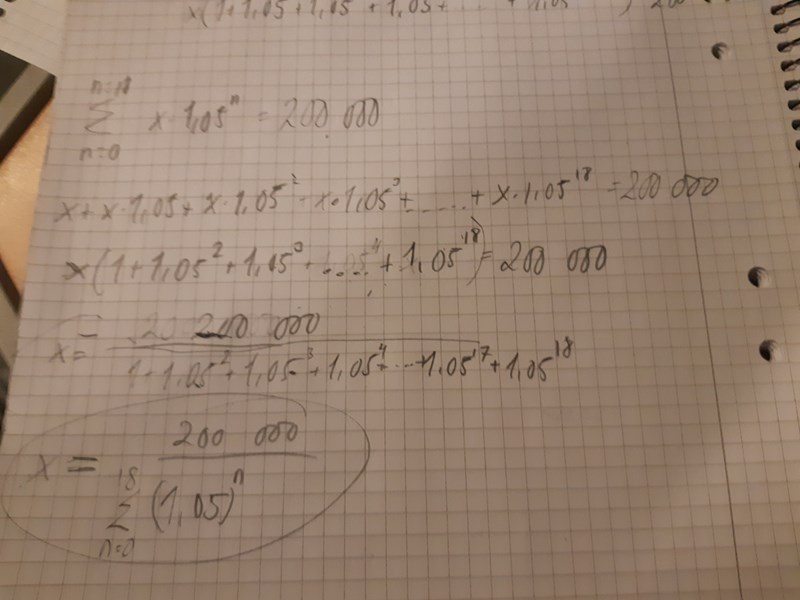 x(1+1,05+1,05 +1,05+
n=18
Σ x·1,05ⁿ = 200 000
n=0
x+x·1,05+x·1,05²+x·1,05³+.....+x·1,05¹⁸=200 000
x(1+1,05²+1,05³+....+1,05¹⁸)=200 000
200 000
x=
1+1,05²+1,05³+1,05⁴+...+1.05¹⁷+1,05¹⁸
200 000
x =
18
Σ (1,05)ⁿ
n=0